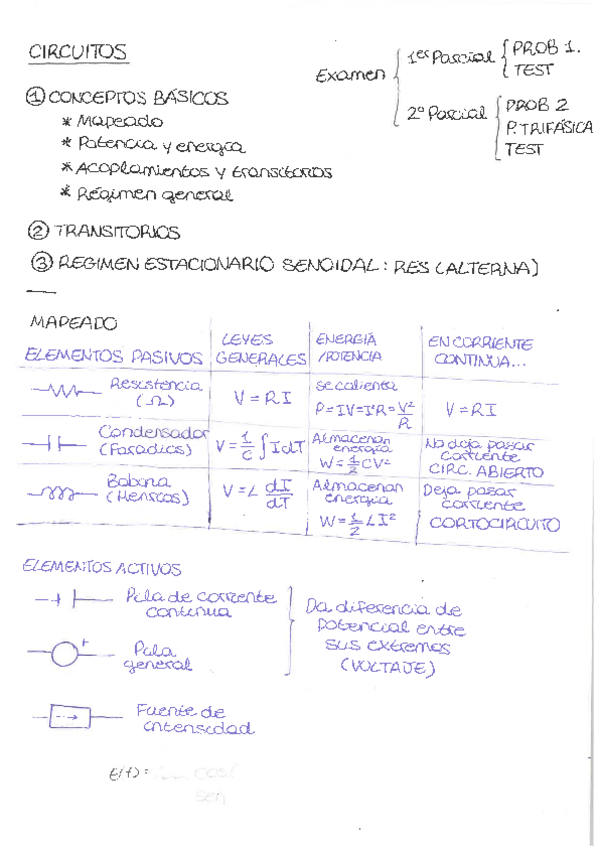 CIRCUITOS
Examen
1er Parcial
PROB 1.
TEST
2º Parcial
PROB 2
P.TRIFÁSICA
TEST
① CONCEPTOS BÁSICOS
* Mapeado
* Potencia y energía
* Acoplamientos y transitorios
* Régimen general
② TRANSITORIOS
③ REGIMEN ESTACIONARIO SENOIDAL: RES (ALTERNA)
MAPEADO
ELEMENTOS PASIVOS
LEYES GENERALES
ENERGIA /POTENCIA
EN CORRIENTE CONTINUA...
Resistencia (Ω)
V = RI
se calienta
P = IV = I²R = V²/R
V = RI
Condensador (Faradios)
V = 1/C ∫ I dT
Almacenan energía
W = 1/2 CV²
No deja pasar corriente
CIRC. ABIERTO
Bobina (Henrios)
V = L dI/dT
Almacenan energía
W = 1/2 LI²
Deja pasar corriente
CORTOCIRCUITO
ELEMENTOS ACTIVOS
Pila de corriente continua
+
Pila general
Da diferencia de
potencial entre
sus extremos
(VOLTAJE)
Fuente de intensidad
E(t) = cos(
sen